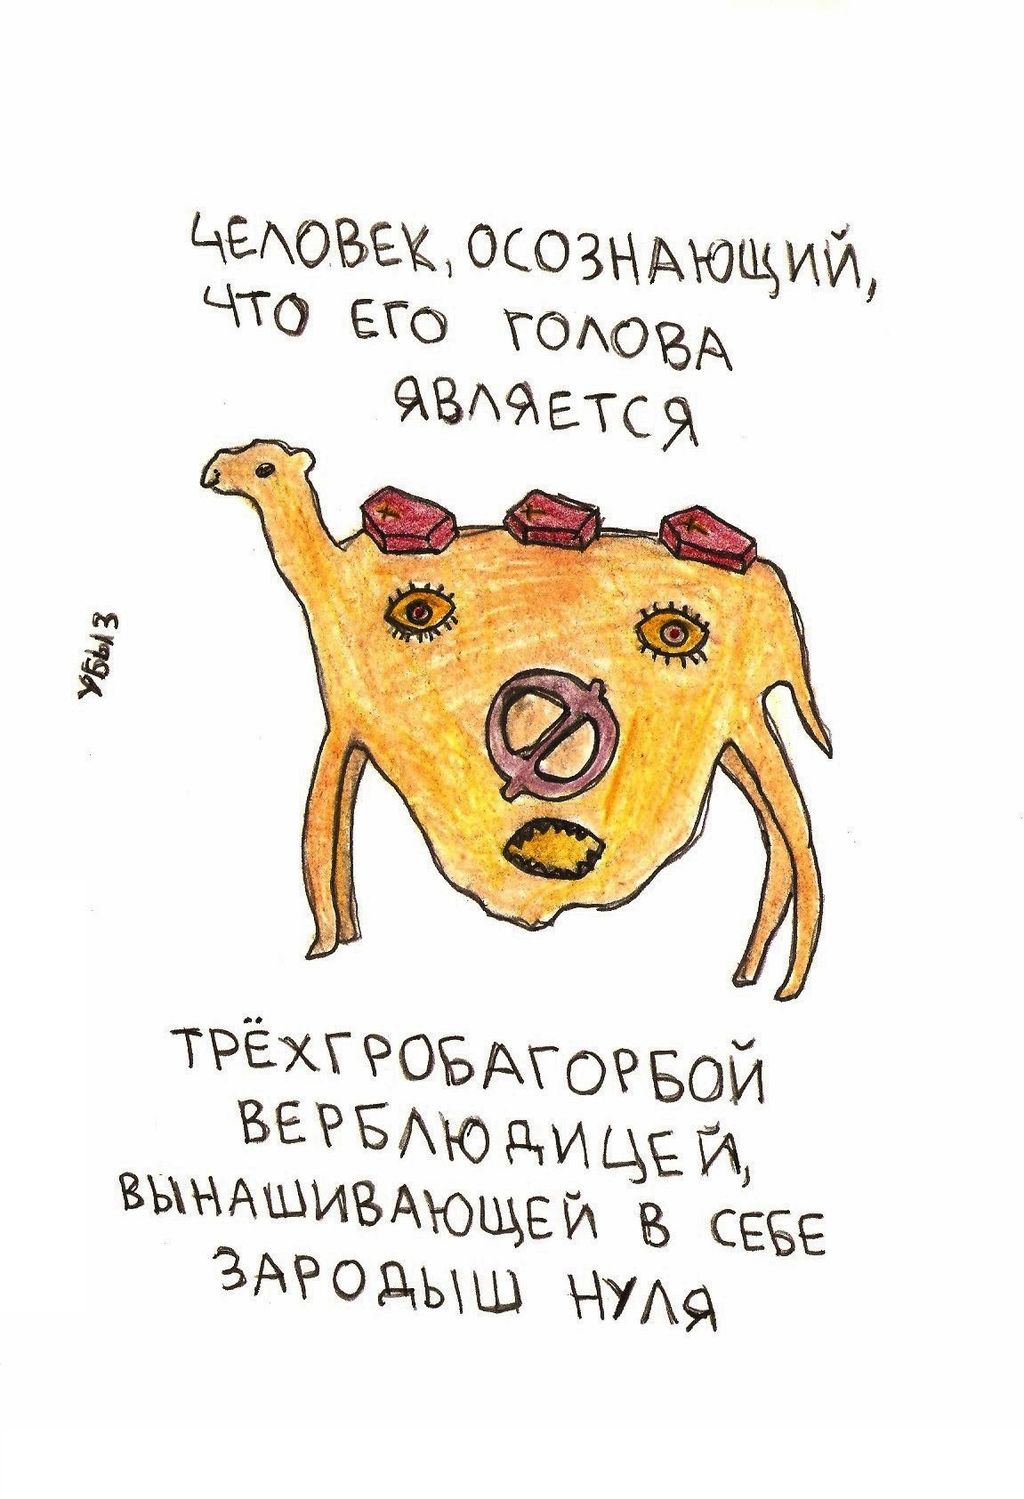 ЧЕЛОВЕК, ОСОЗНАЮЩИЙ,
ЧТО ЕГО ГОЛОВА
ЯВЛЯЕТСЯ
УБЫЗ
ТРЁХГРОБАГОРБОЙ
ВЕРБЛЮДИЦЕЙ,
ВЫНАШИВАЮЩЕЙ В СЕБЕ
ЗАРОДЫШ НУЛЯ